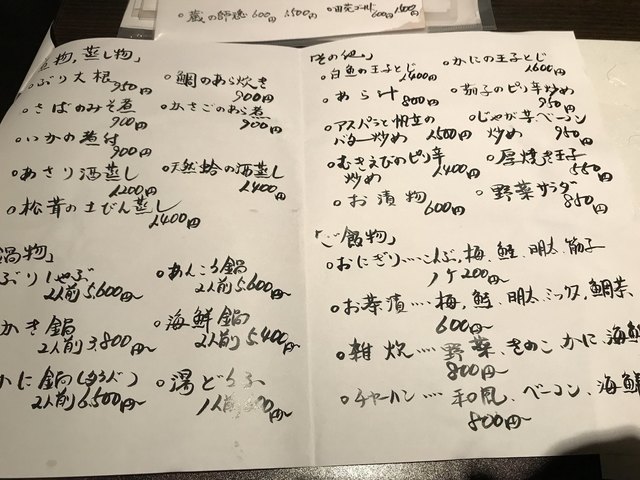 蔵の師魂 600円 3,500円
物,蒸し物」
ぶり大根
950円
鯛のあら炊き
900円
さばのみそ煮
900円
かさごのあら煮
900円
いかの煮付
900円
あさり酒蒸し
1,200円
天然蛤の酒蒸し
1,400円
松茸の土びん蒸し
1,400円
鍋物」
ぶりしゃぶ
2人前5,600円
あんこう鍋
2人前5,600円
かき鍋
2人前3,800円~
海鮮鍋
2人前5,400円~
かに鍋
2人前6,500円~
湯どうふ
1人前
「その他」
白魚の玉子とじ
1,400円
かにの玉子とじ
1,600円
あら汁
800円
茄子のピリ辛炒め
950円
アスパラと帆立の
バター炒め 1,500円
じゃが芋ベーコン
炒め 950円
むきえびのピリ辛
炒め 1,400円
厚焼き玉子
550円
お漬物
600円
野菜サラダ
850円
「ご飯物」
おにぎり…こんぶ,梅,鮭,明太,筋子
1ケ200円~
お茶漬…梅,鮭,明太,ミックス,鯛茶、
600円~
雑炊…野菜、きのこ かに、海鮮
800円~
チャーハン…和風、ベーコン、海鮮
800円~